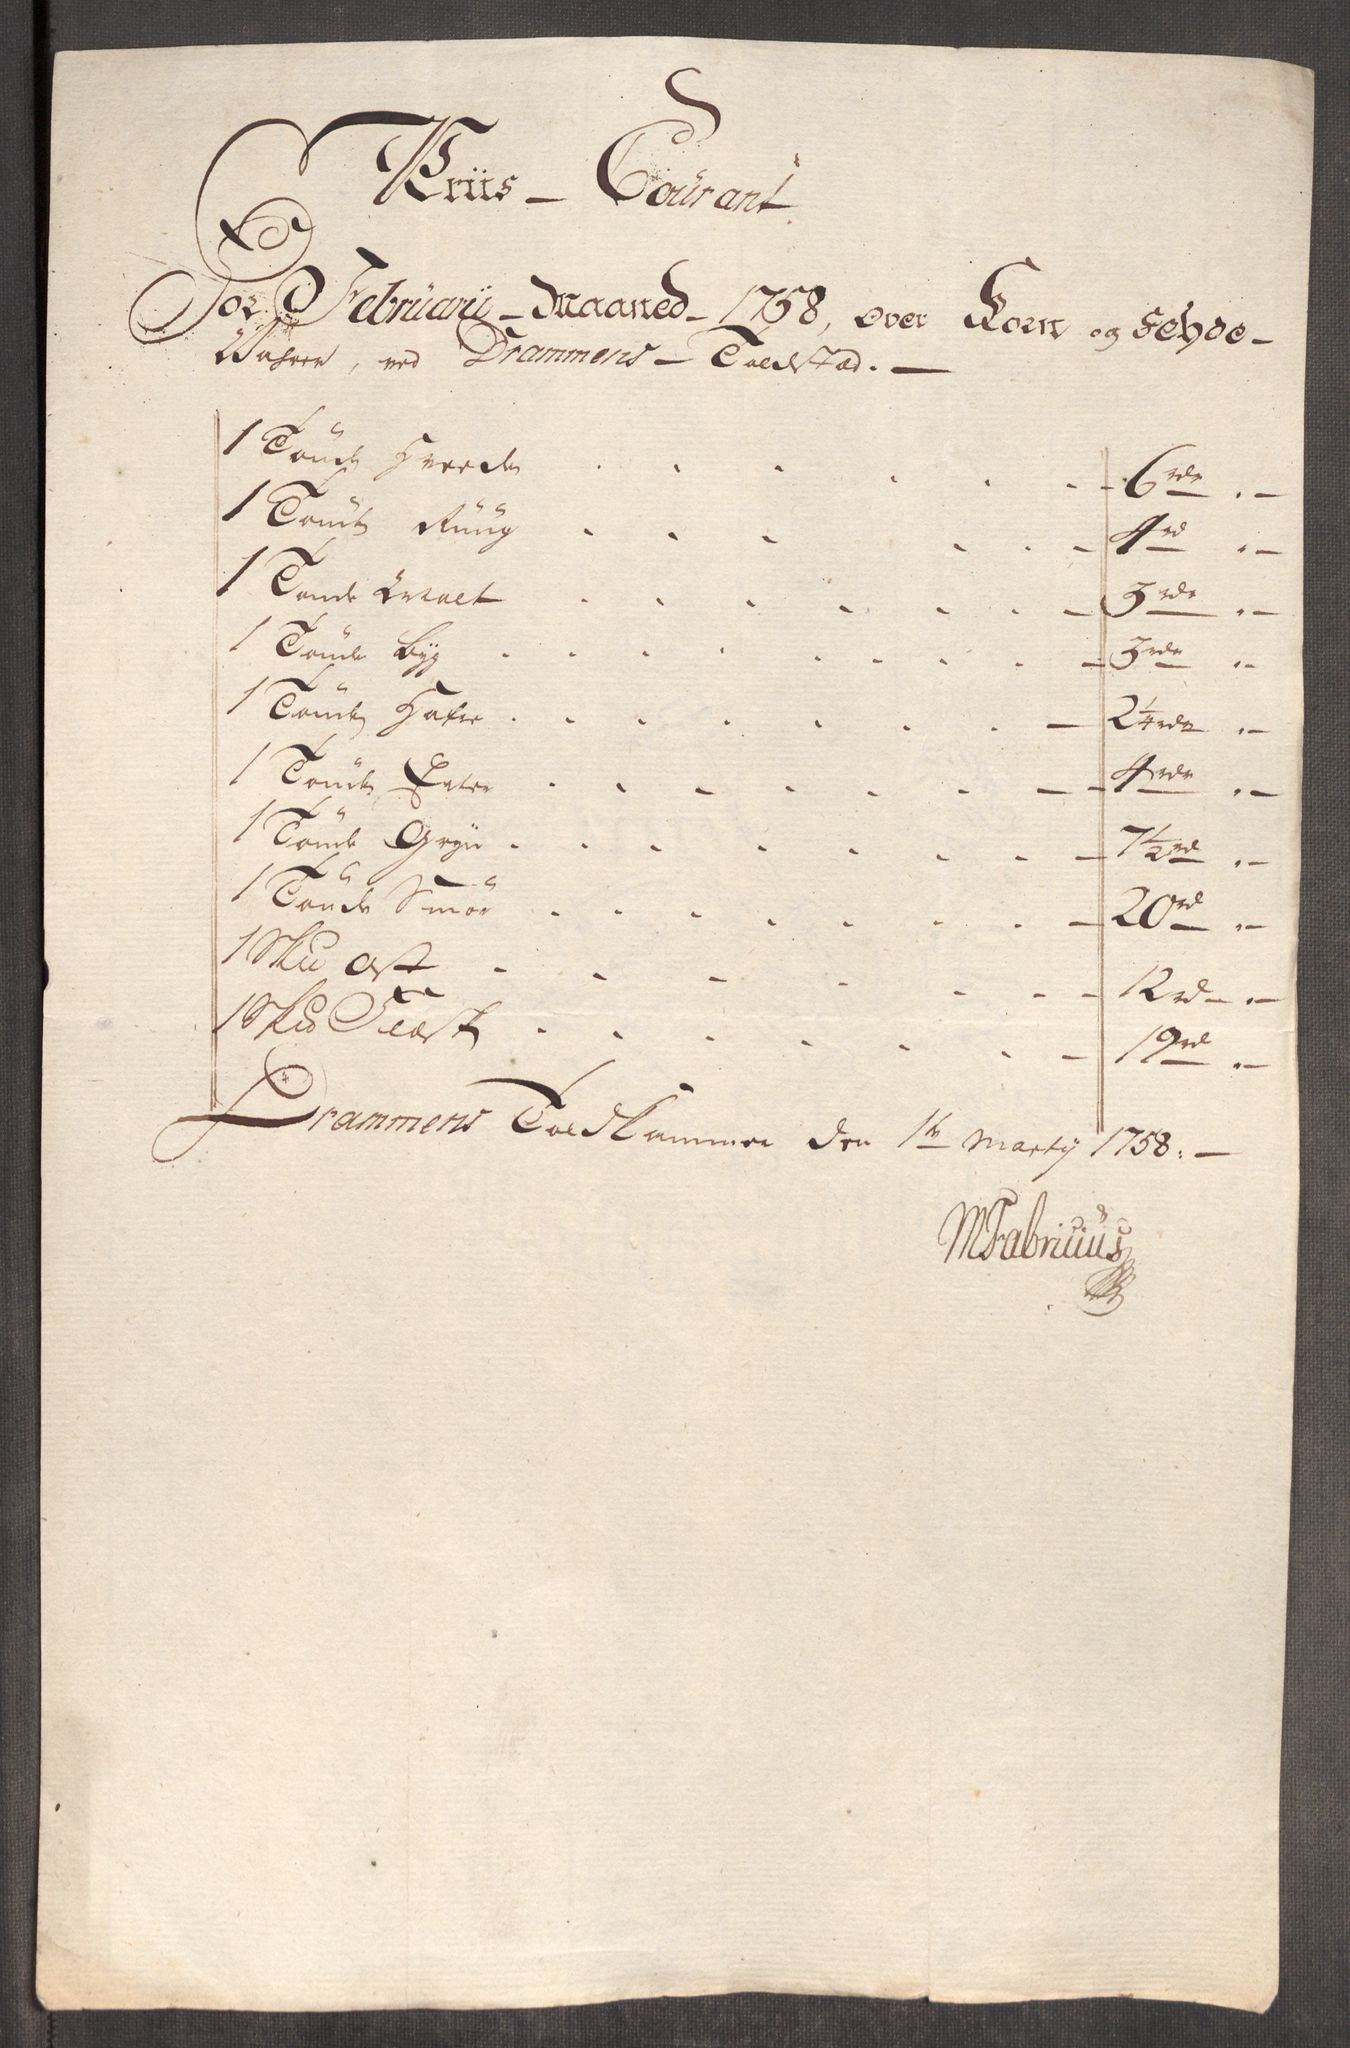 Priis - Courant
For Februarii - Maaned - 1758, over Korn og Fehde -
Wahrer, ved Drammens - Toldstæd. -
1 Tønde Hveede . . . . . . - 6 rdr " -
1 Tønde Ruug . . . . . - 4 rd " -
1 Tønde Malt . . . . . . - 3 rdr " -
1 Tønde Byg . . . . . . . - 3 rdr " -
1 Tønde Hafre . . . . . . . - 2 1/4 rdr " -
1 Tønde Erter . . . . . . - 4 rdr " -
1 Tønde Gryn . . . . . . . - 7 1/2 rd " -
1 Tønde Smør . . . . . . - 20 rd " -
1 Sku Ost . . . . . . - 12 rd - " -
1 Sku Flæsk . . . . . . - 19 rd " -
Drammens Toldkammer den 1te Martij 1758. -
MFabricius